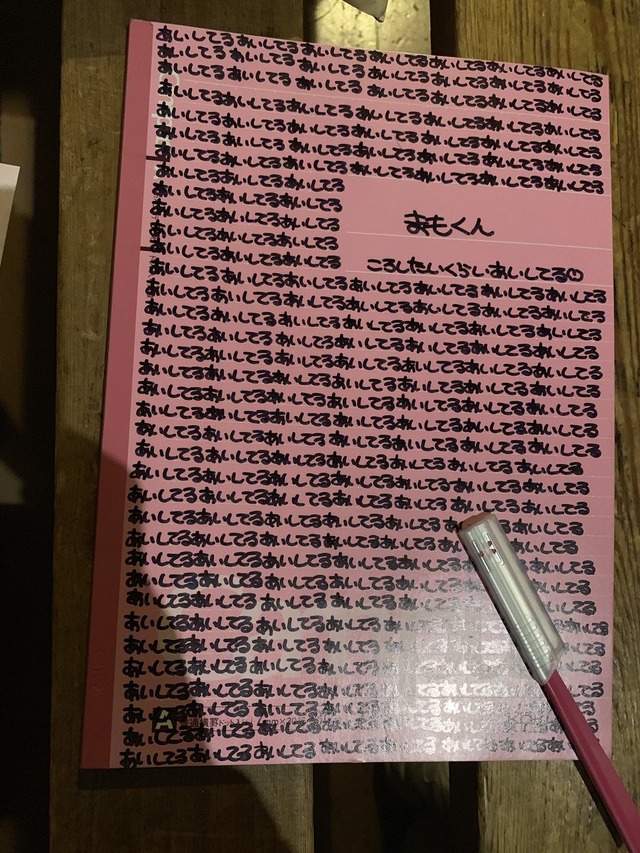 あいしてるあいしてるあいしてるあいしてるあいしてるあいしてる
あいしてるあいしてるあいしてるあいしてるあいしてるあいしてる
あいしてるあいしてるあいしてるあいしてるあいしてるあいしてる
あいしてるあいしてるあいしてるあいしてるあいしてるあいしてる
あいしてるあいしてるあいしてるあいしてるあいしてるあいしてる
あいしてるあいしてるあいしてるあいしてるあいしてるあいしてる
あいしてるあいしてるあいしてるあいしてるあいしてるあいしてる
あいしてるあいしてるあいしてる
あいしてるあいしてるあいしてる
あいしてるあいしてるあいしてる
あいしてるあいしてるあいしてる
あいしてるあいしてるあいしてる
おもくん
ころしたいくらいあいしてる
あいしてるあいしてるあいしてるあいしてるあいしてるあいしてる
あいしてるあいしてるあいしてるあいしてるあいしてるあいしてる
あいしてるあいしてるあいしてるあいしてるあいしてるあいしてる
あいしてるあいしてるあいしてるあいしてるあいしてるあいしてる
あいしてるあいしてるあいしてるあいしてるあいしてるあいしてる
あいしてるあいしてるあいしてるあいしてるあいしてるあいしてる
あいしてるあいしてるあいしてるあいしてるあいしてるあいしてる
あいしてるあいしてるあいしてるあいしてるあいしてるあいしてる
あいしてるあいしてるあいしてるあいしてるあいしてるあいしてる
あいしてるあいしてるあいしてるあいしてるあいしてるあいしてる
あいしてるあいしてるあいしてるあいしてるあいしてるあいしてる
あいしてるあいしてるあいしてるあいしてるあいしてるあいしてる
あいしてるあいしてるあいしてるあいしてるあいしてる
あいしてるあいしてるあいしてるあいしてるあいしてる
あいしてるあいしてるあいしてるあいしてるあいしてる
あいしてるあいしてるあいしてるあいしてるあいしてる
あいしてるあいしてるあいしてるあいしてるあいしてる
あいしてるあいしてるあいしてるあいしてるあいしてる
あいしてるあいしてるあいしてるあいしてるあいしてる
あいしてるあいしてるあいしてるあいしてるあいしてる
あいしてるあいしてるあいしてるあいしてるあいしてる
あいしてるあいしてるあいしてるあいしてる
あいしてるあいしてるあいしてるあいしてる
あいしてるあいしてるあいしてるあいしてる